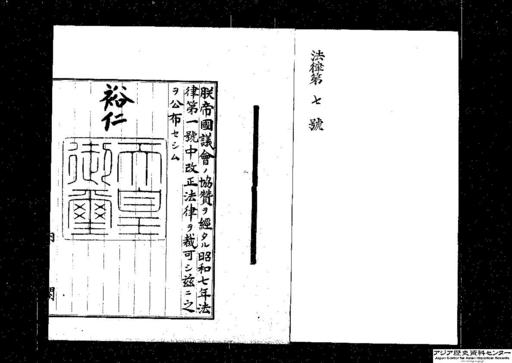 法律第七號
朕帝國議會ノ協贊ヲ經タル昭和七年法
律第一號中改正法律ヲ裁可シ茲ニ之
ヲ公布セシム
裕仁
天皇
御璽
内閣
アジア歴史資料センター
Japan Center for Asian Historical Records